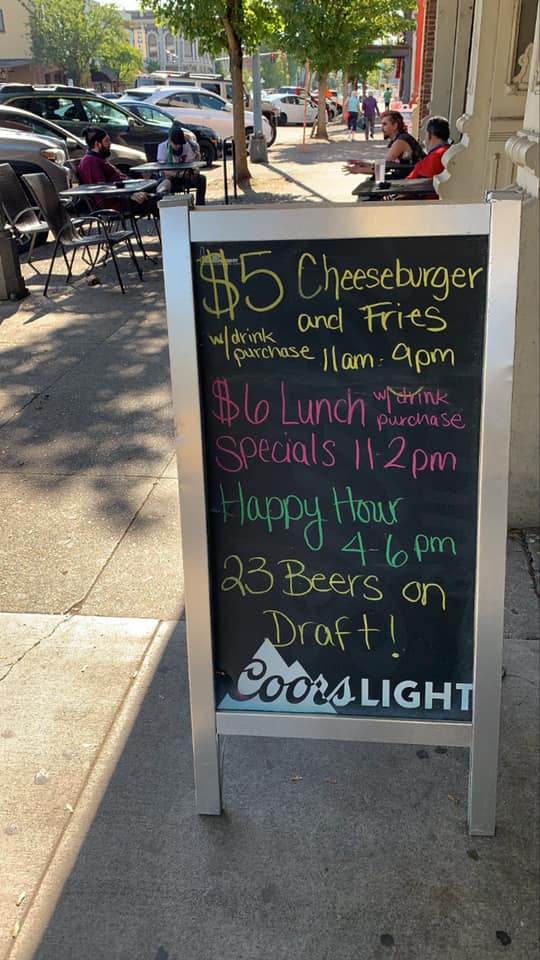 $5 Cheeseburger
and Fries
w/ drink
purchase 11am - 9pm
$6 Lunch w/ drink
purchase
Specials 11-2pm
Happy Hour
4-6pm
23 Beers on
Draft!
Coors LIGHT